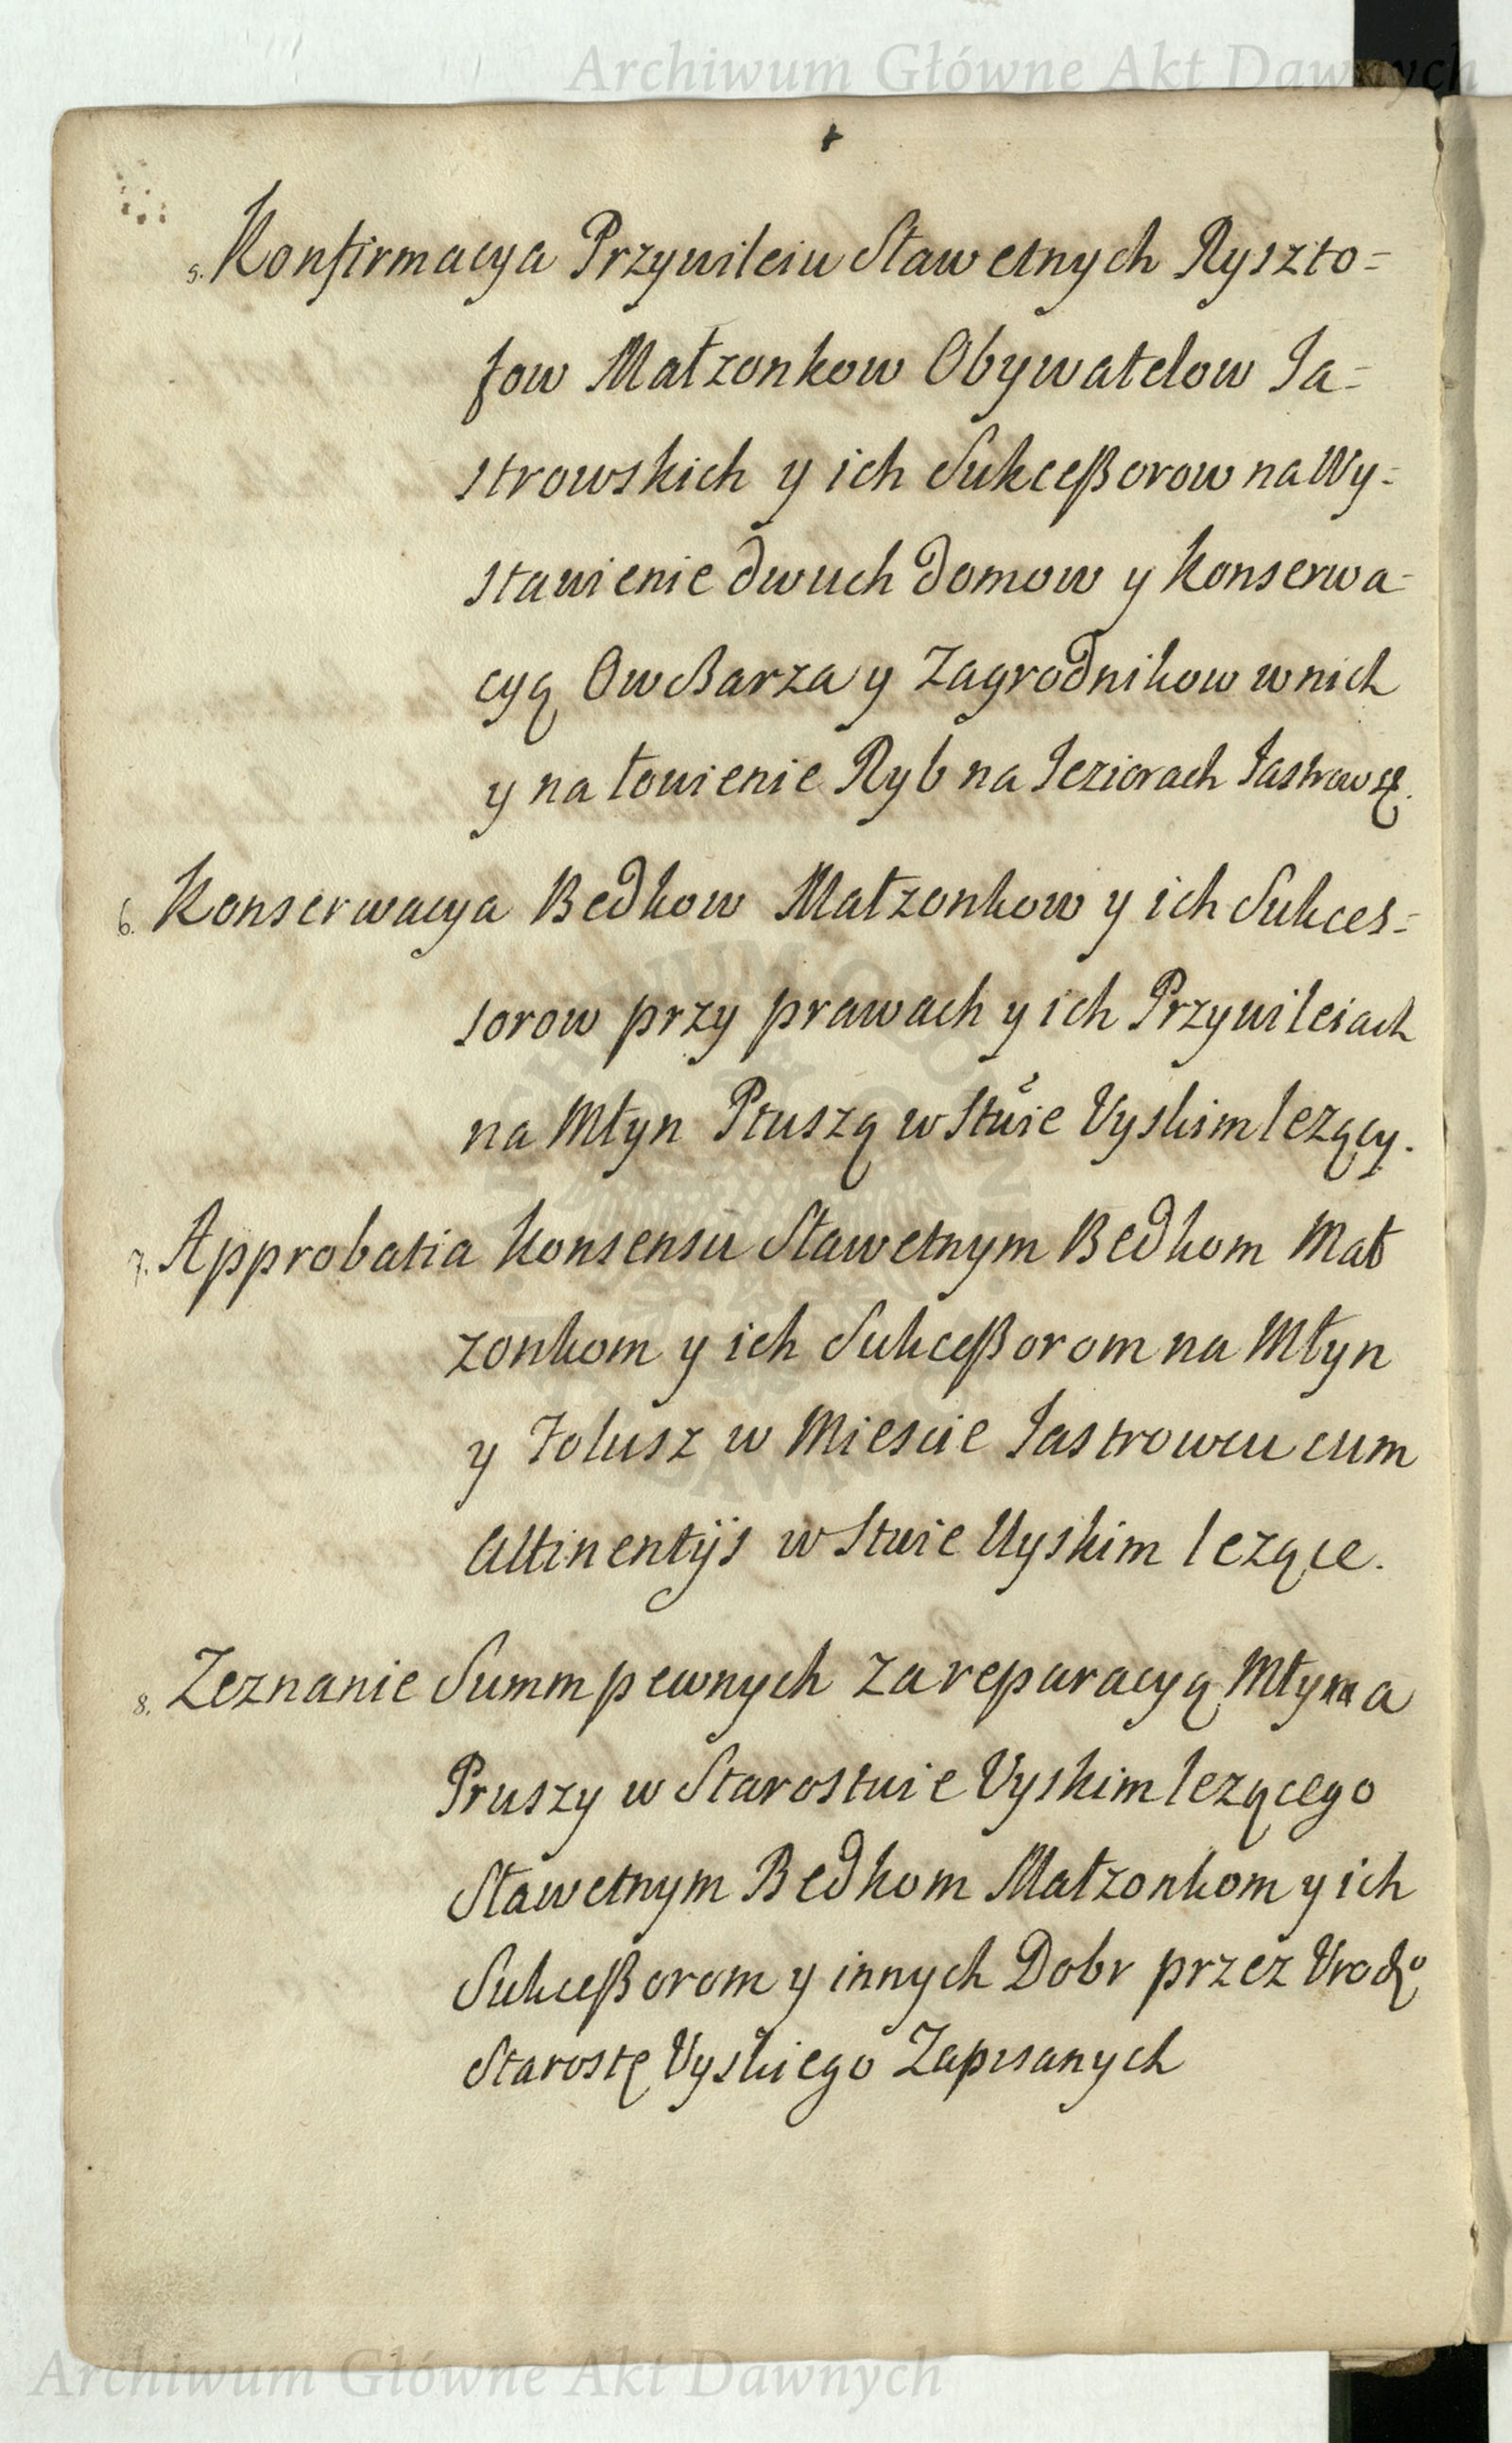 Archiwum Główne Akt Dawnych
5. Konfirmacya Przywileiu Sławetnych Ryszto=
fow Małzonkow Obywatelow Ja=
strowskich y ich Sukceßorow na Wy=
stawienie dwuch domow y konserwa=
cyą Owczarza y Zagrodnikow w nich
y na łowienie Ryb na Jeziorach Jastrowsk.
6. Konserwacya Bedkow Małzonkow y ich Sukces=
sorow przy prawach y ich Przywileiach
na Młyn Ptuszą w Stwie Vyskim lezący.
7. Approbatia konsensu Sławetnym Bedkom Mał
zonkom y ich Sukceßorom na Młyn
y Folusz w Miescie Jastrowcu cum
Attinentijs w Stwie Uyskim lezące.
8. Zeznanie Summ pewnych za reparacyą Młyna
Pruszy w Starostwie Vyskim lezącego
Sławetnym Bedkom Małzonkom y ich
Sukceßorom y innych Dobr przez Vrodo
Starostę Vyskiego Zapisanych
Archiwum Główne Akt Dawnych